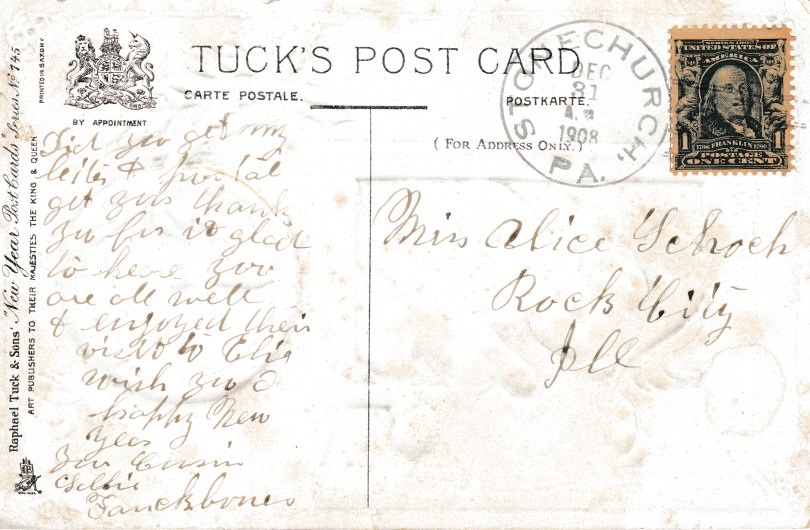 Raphael Tuck & Sons' "New Year" Post Cards Series Nº 145
ART PUBLISHERS TO THEIR MAJESTIES THE KING & QUEEN
PRINTED IN SAXONY
BY APPOINTMENT
TUCK'S POST CARD
CARTE POSTALE.
POSTKARTE.
(FOR ADDRESS ONLY.)
STONECHURCH,
DEC
31
1908
PA.
SERIES 1902
UNITED STATES OF
AMERICA
1 1
1706 FRANKLIN 1790
POSTAGE
ONE CENT
Did you get my
letter & postal
get yours thanks
you for it glad
to hear you
are all well
& enjoyed their
visit to
wish you a
happy New
Year
Your Cousin
Miss Alice Schoch
Rock City
Ill